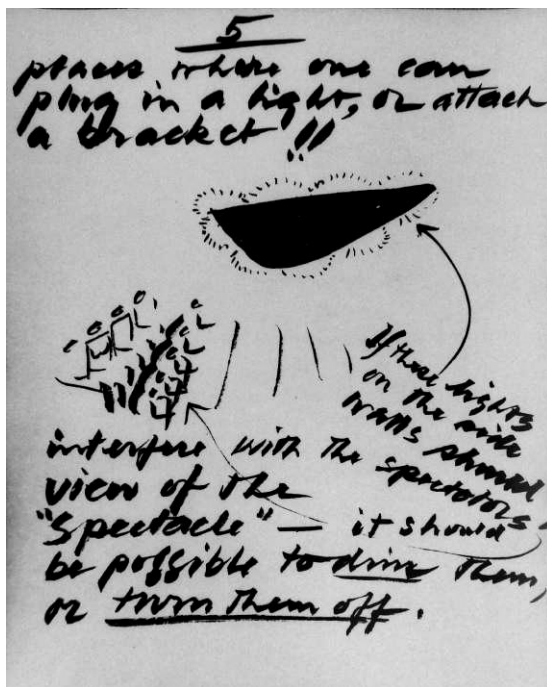 5
places where one can
plug in a light, or attach
a bracket!!
If these lights
on the side
walls should
interfere with the spectators
view of the
"Spectacle" — it should
be possible to dim them,
or turn them off.